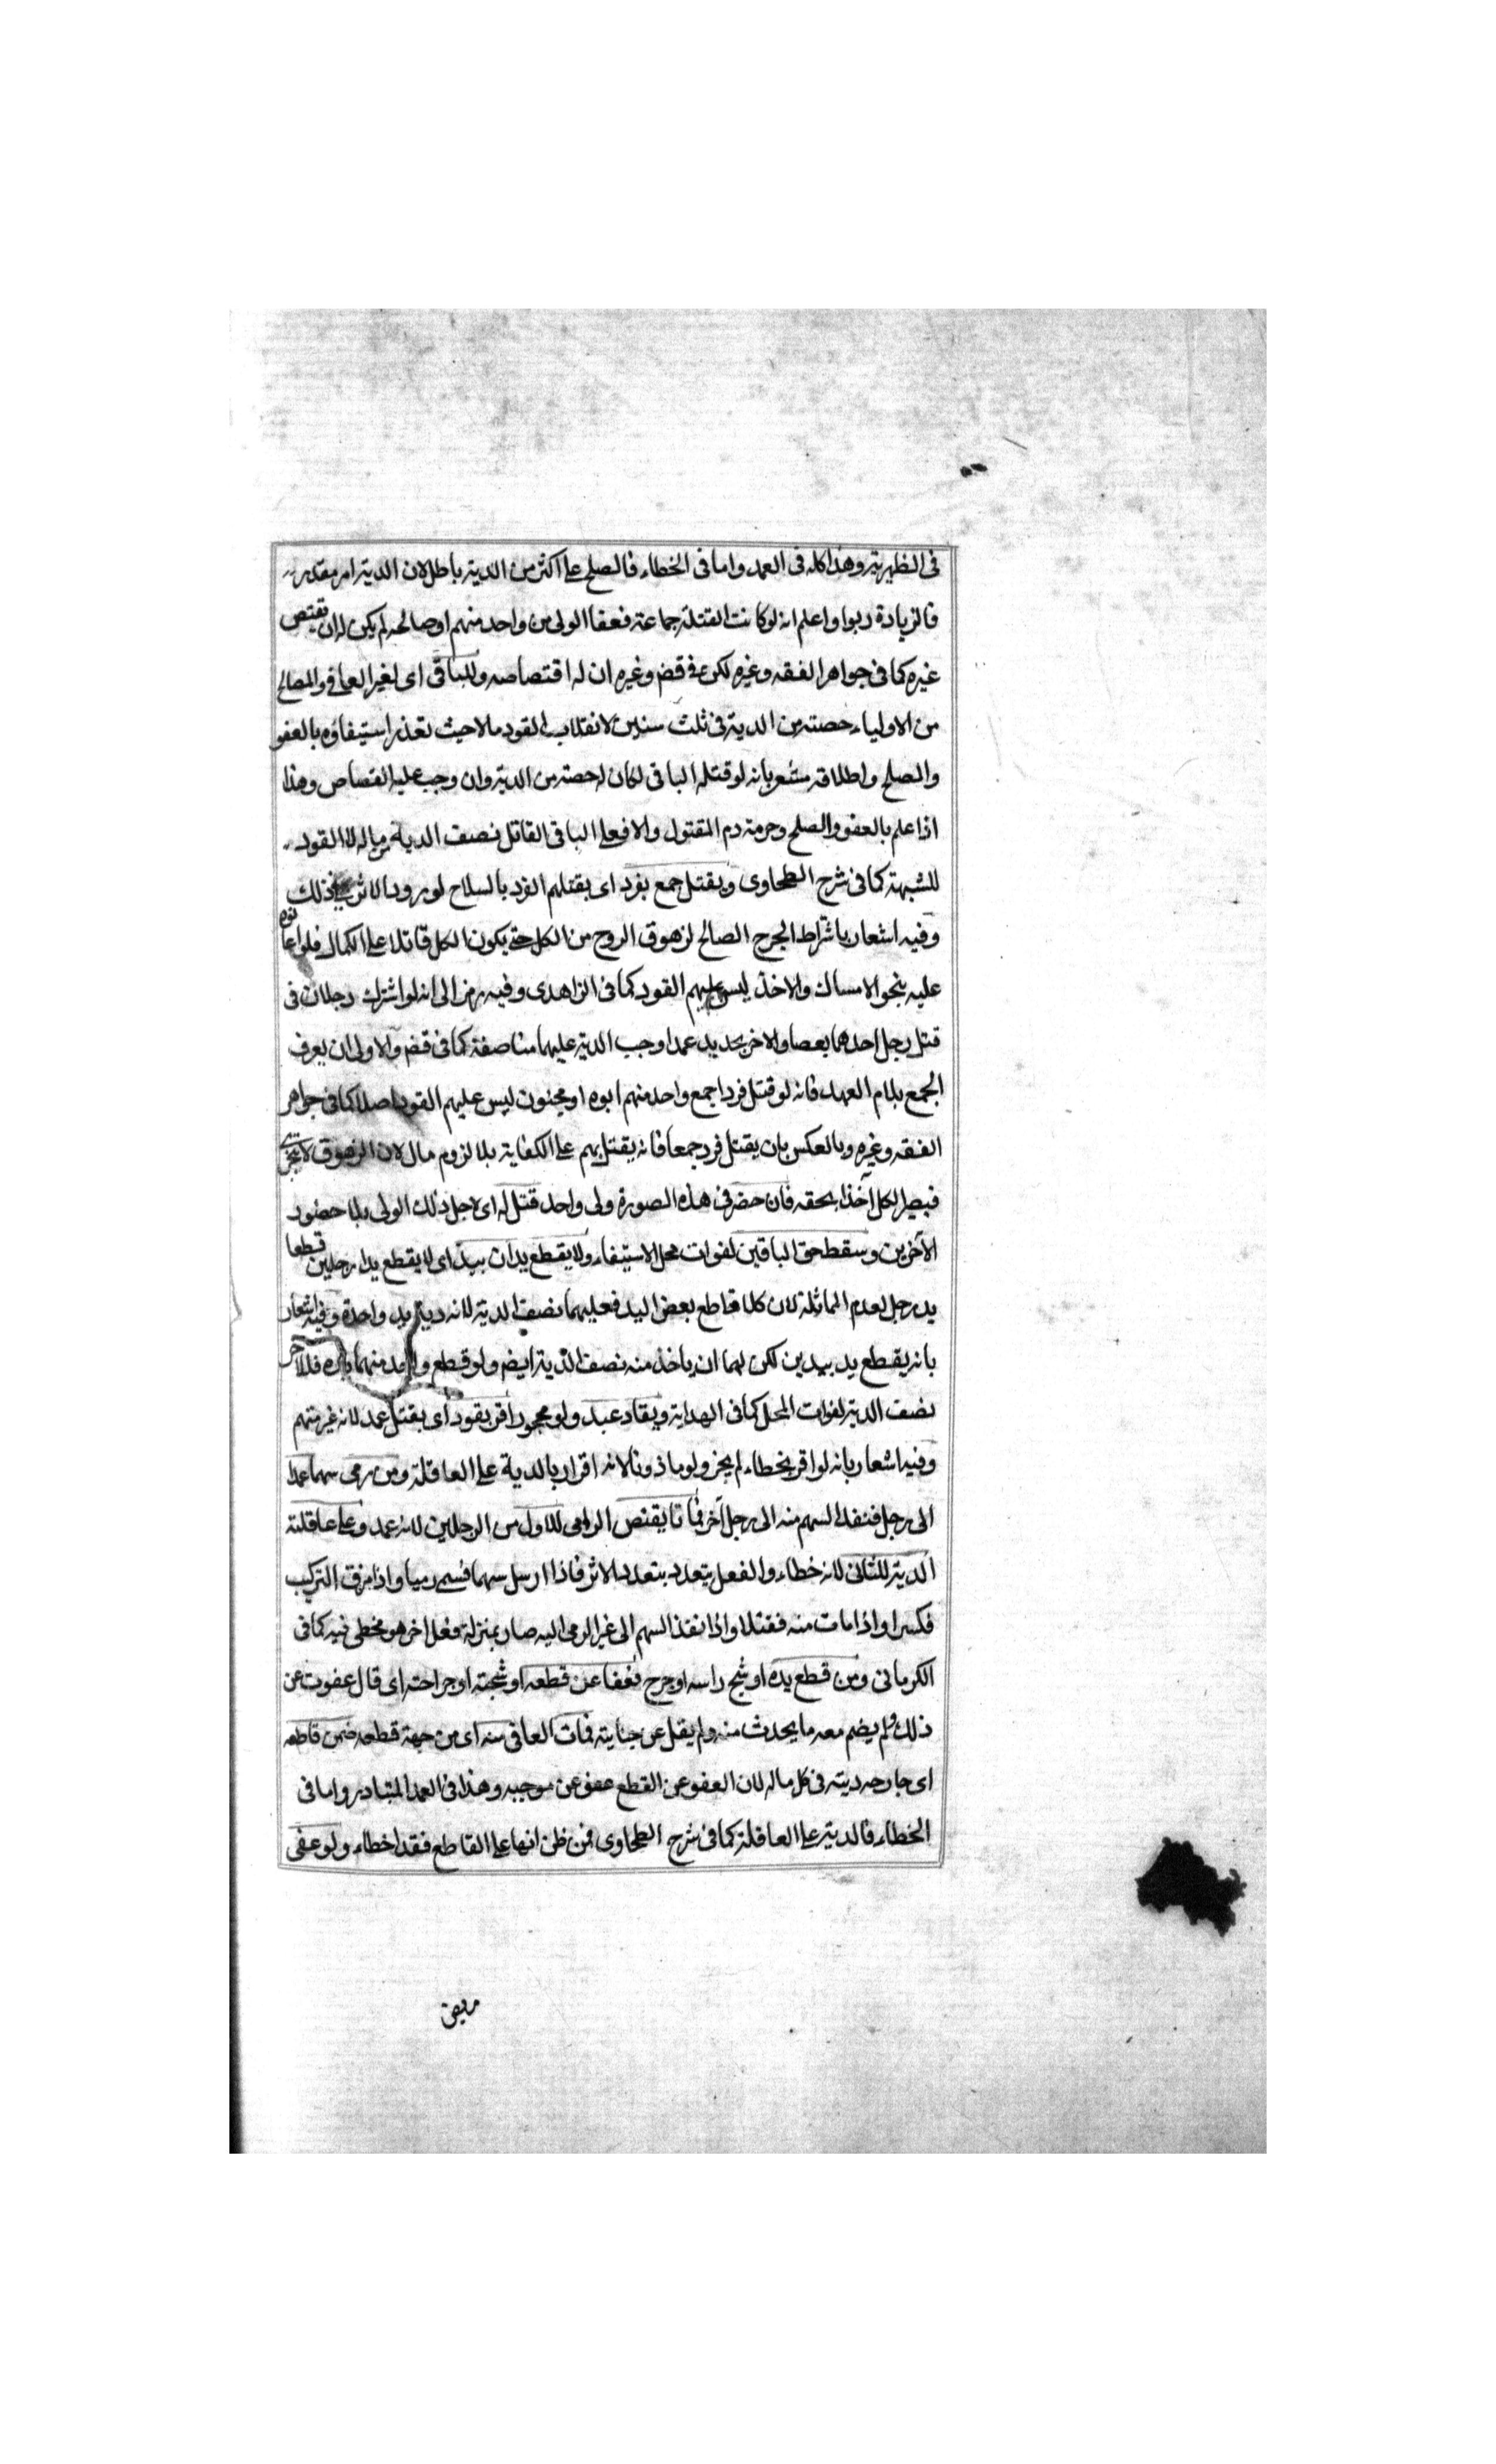 فى الظهيرية وهذا كله فى العمد واما فى الخطاء فالصلح على اكثر من الدية باطل لان الدية امر مقدر
فالزيادة ربوا واعلم انه لو كانت القتلة جماعة فعفا الولى من واحد منهم او صالحه لم يكن له ان يقتص
غيره كما فى جواهر الفقه وغيره لكن فى قض وغيره ان له اقتصاصه وللباقى اى لغير العافى والمصالح
من الاولياء حصته من الدية فى ثلث سنين لانقلاب القود مالا حيث تعذر استيفاؤه بالعفو
والصلح واطلاقه مشعر بانه لو قتله الباقى لكان له حصته من الدية وان وجب عليه القصاص وهذا
اذا علم بالعفو والصلح وحرمة دم المقتول والا فعلى الباقى القاتل نصف الدية من ماله لا القود
للشبهة كما فى شرح الطحاوى ويقتل جمع بفرد اى بقتلهم الفرد بالسلاح لورود الاثر فى ذلك
وفيه اشعار باشتراط الجرح الصالح لزهوق الروح من الكل حتى يكون الكل قاتلا على الكمال فلو اعانوه
عليه بنحو الامساك والاخذ ليس عليهم القود كما فى الزاهدى وفيه رمز الى انه لو اشترك رجلان فى
قتل رجل احدهما بعصا والاخر بحديد عمدا وجب الدية عليهما مناصفة كما فى قض والاولى ان يعرف
الجمع بلام العهد فانه لو قتل فردا جمع واحد منهم ابوه او مجنون ليس عليهم القود اصلا كما فى جواهر
الفقه وغيره وبالعكس بان يقتل فرد جمعا فانه يقتل بهم على الكفاية بلا لزوم مال لان الزهوق لا يتجزى
فيصير الكل آخذا بحقه فان حضر فى هذه الصورة ولى واحد قتل له اى لاجل ذلك الولى بلا حضور
الآخرين وسقط حق الباقين لفوات محل الاستيفاء ولا يقطع يدان بيد اى لا يقطع يدا رجلين قطعا
يد رجل لعدم المماثلة لان كلا قاطع بعض اليد فعليهما نصف الدية لانه دية يد واحدة وفيه اشعار
بانه يقطع يد بيدين لكن لهما ان ياخذ منه نصف الدية ايضا ولو قطع واحد منهما يده فللاخر
نصف الدية لفوات المحل كما فى الهداية ويقاد عبد ولو محجورا اقر بقود اى بقتل عمد لانه غير متهم
وفيه اشعار بانه لو اقر بخطاء لم يجز ولو ماذونا لانه اقرار بالدية على العاقلة ومن رمى سهما عمدا
الى رجل فنفذ السهم منه الى رجل آخر فماتا يقتص الرامى للاول من الرجلين لانه عمد وعلى عاقلته
الدية للثانى لانه خطاء والفعل يتعدد بتعدد الاثر فاذا ارسل سهما فسمى رميا واذا مزق التركيب
فكسرا واذا مات منه فقتلا واذا نفذ السهم الى غير المرمى اليه صار بمنزلة فعل اخر هو مخطى فيه كما فى
الكرمانى ومن قطع يده او شج راسه او جرح فعفا عن قطعه او شجته او جراحته اى قال عفوت عن
ذلك ولم يضم معه ما يحدث منه ولم يقل عن جنايته فمات العافى منه اى من جهة قطعه ضمن قاطعه
اى جارحه ديته فى كل ماله لان العفو عن القطع عفو عن موجبه وهذا فى العمد المتبادر واما فى
الخطاء فالدية على العاقلة كما فى شرح الطحاوى فمن ظن انها على القاطع فقد اخطاء ولو عفى